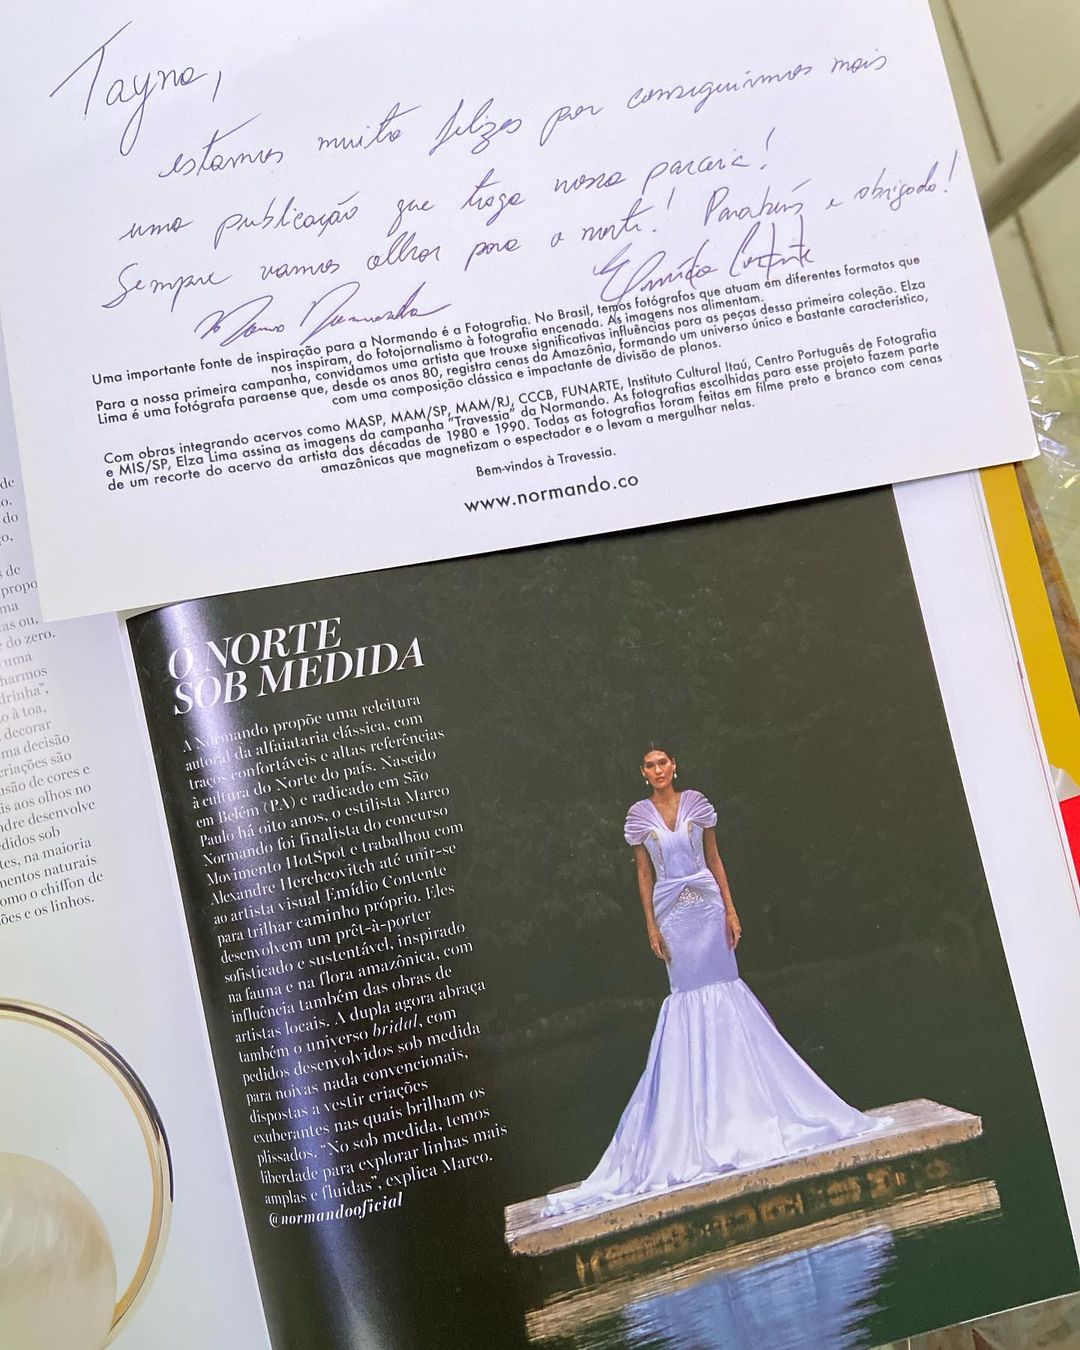 Tayna,
estamos muito felizes por conseguirmos mais
uma publicação que traga nossa parceria!
Sempre vamos olhar para o norte! Parabéns e obrigado!
Marco Normando
Emídio Contente
Uma importante fonte de inspiração para a Normando é a Fotografia. No Brasil, temos fotógrafos que atuam em diferentes formatos que
nos inspiram, do fotojornalismo à fotografia encenada. As imagens nos alimentam.
Para a nossa primeira campanha, convidamos uma artista que trouxe significativas influências para as peças dessa primeira coleção. Elza
Lima é uma fotógrafa paraense que, desde os anos 80, registra cenas da Amazônia, formando um universo único e bastante característico,
com uma composição clássica e impactante de divisão de planos.
Com obras integrando acervos como MASP, MAM/SP, MAM/RJ, CCCB, FUNARTE, Instituto Cultural Itaú, Centro Português de Fotografia
e MIS/SP, Elza Lima assina as imagens da campanha "Travessia" da Normando. As fotografias escolhidas para esse projeto fazem parte
de um recorte do acervo da artista das décadas de 1980 e 1990. Todas as fotografias foram feitas em filme preto e branco com cenas
amazônicas que magnetizam o espectador e o levam a mergulhar nelas.
Bem-vindos à Travessia.
www.normando.co
de
o.
do
s de
propo
ma
as ou,
do zero.
uma
harmos
drinha",
o à toa,
decorar
ma decisão
riações são
usão de cores e
is aos olhos no
ndre desenvolve
didos sob
tes, na maioria
mentos naturais
omo o chiffon de
ões e os linhos.
O NORTE
SOB MEDIDA
A Normando propõe uma releitura
autoral da alfaiataria clássica, com
traços confortáveis e altas referências
à cultura do Norte do país. Nascido
em Belém (PA) e radicado em São
Paulo há oito anos, o estilista Marco
Normando foi finalista do concurso
Movimento HotSpot e trabalhou com
Alexandre Herchcovitch até unir-se
ao artista visual Emídio Contente
para trilhar caminho próprio. Eles
desenvolvem um prêt-à-porter
sofisticado e sustentável, inspirado
na fauna e na flora amazônica, com
influência também das obras de
artistas locais. A dupla agora abraça
também o universo bridal, com
pedidos desenvolvidos sob medida
para noivas nada convencionais,
dispostas a vestir criações
exuberantes nas quais brilham os
plissados. "No sob medida, temos
liberdade para explorar linhas mais
amplas e fluidas", explica Marco.
@normandooficial